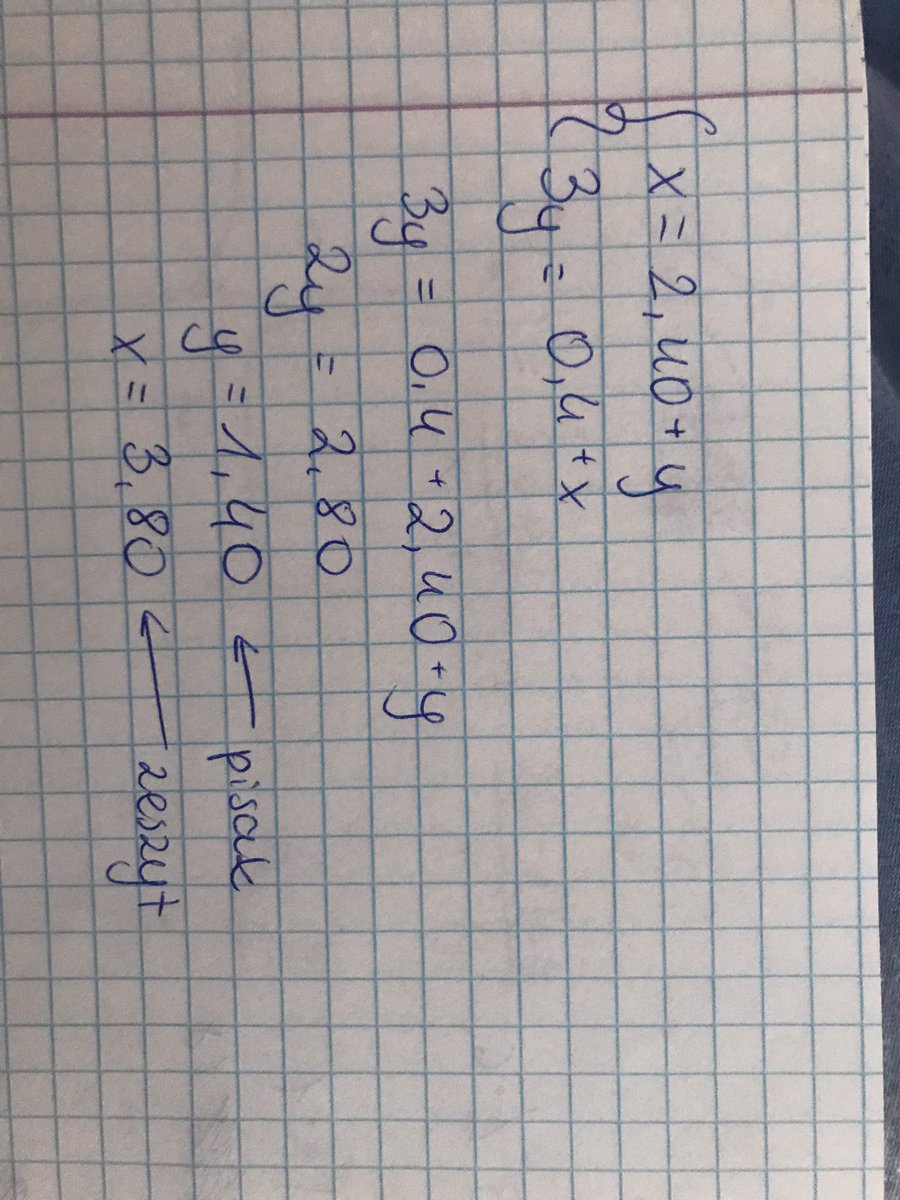 x = 2,40 + y
3y = 0,4 + x
3y = 0,4 + 2,40 + y
2y = 2,80
y = 1,40 ← pisak
x = 3,80 ← zeszyt